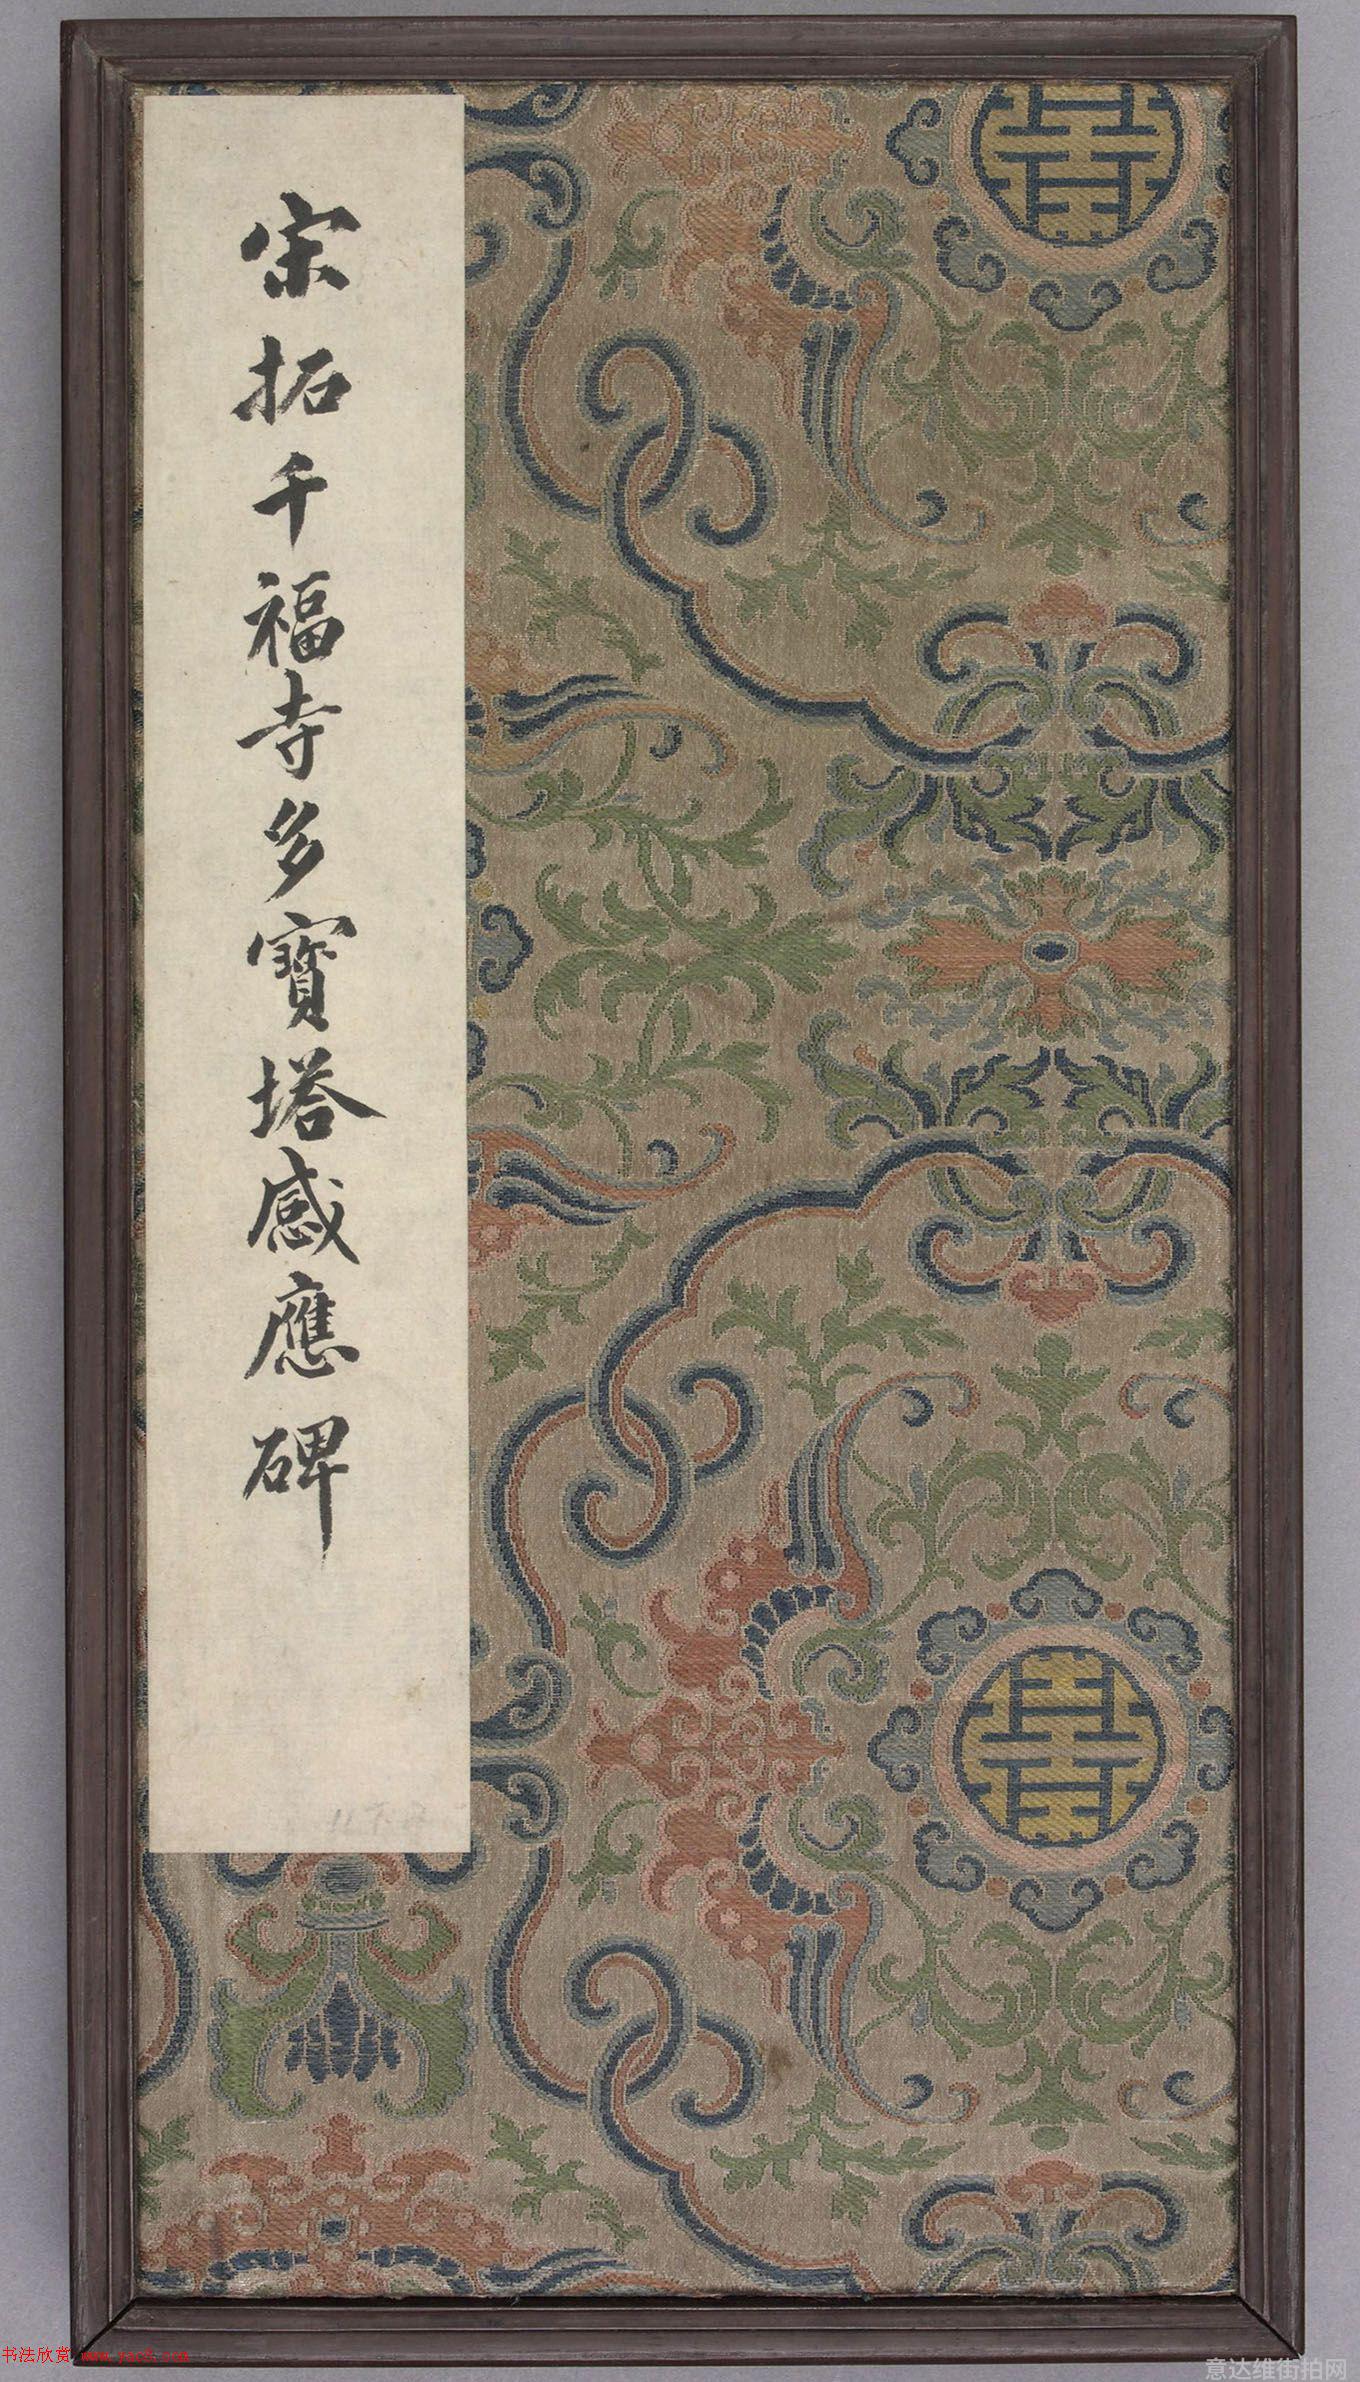 宋拓千福寺多寶塔感應碑
书法欣赏 www.yac8.com
意达维街拍网